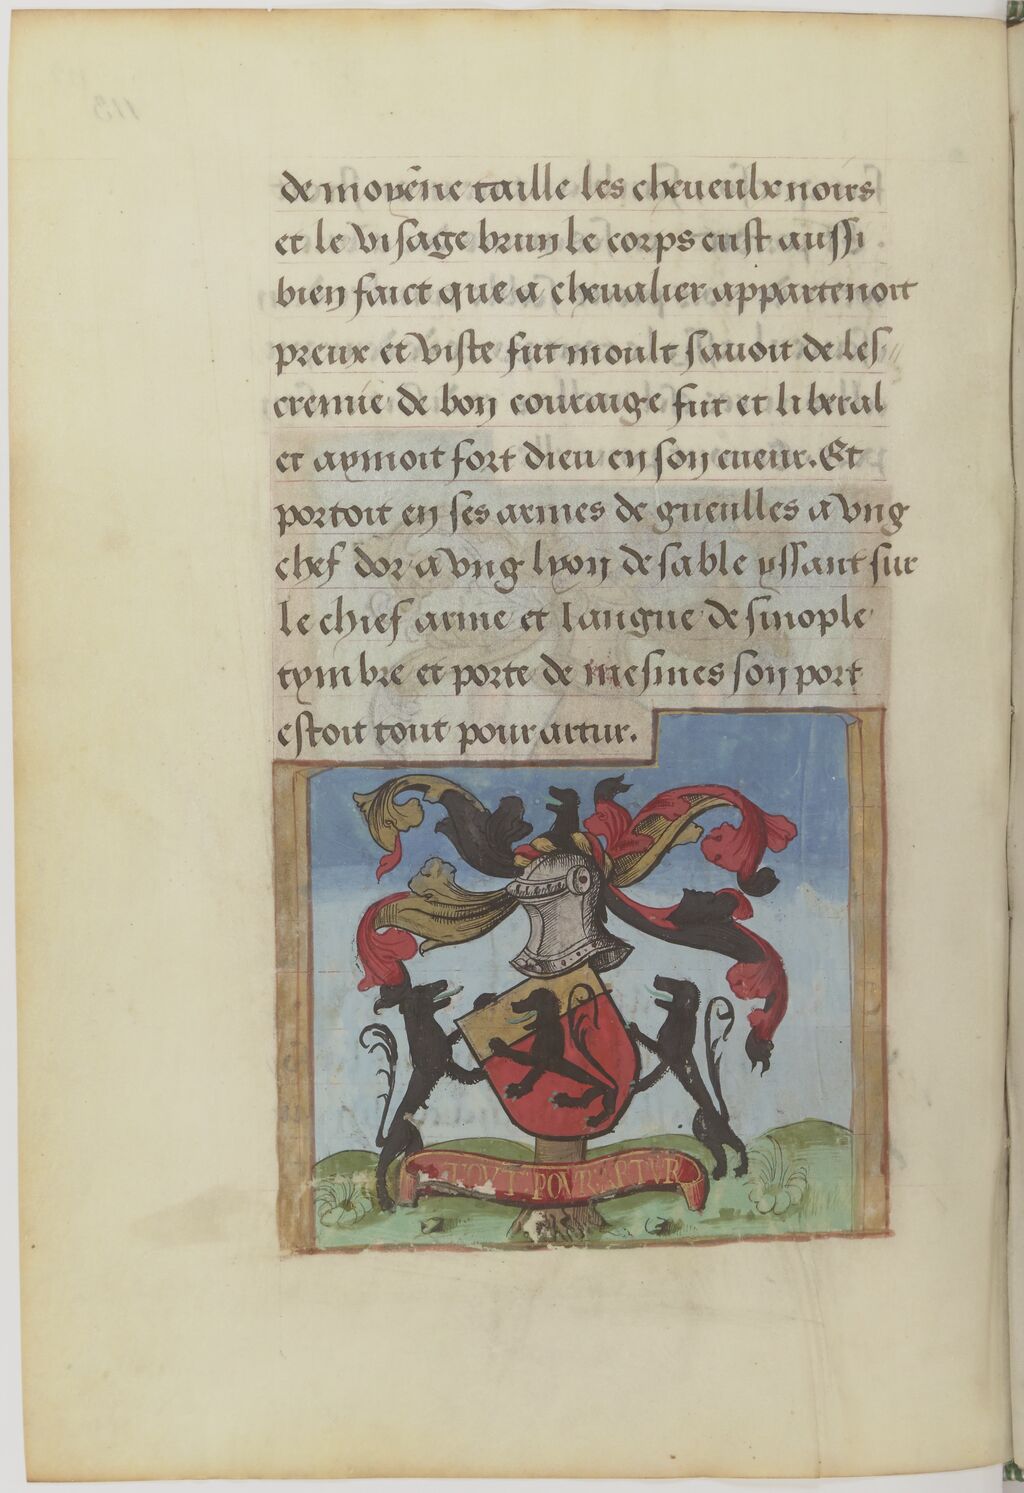 113
de moyēne taille les cheueulx noirs
et le visage brun le corps eust aussi
bien faict que a cheualier appartenoit
preux et viste fut moult sauoit de les
cremie de bon couraige fut et liberal
et aymoit fort dieu en son cueur. Et
portoit en ses armes de gueulles a vng
chef dor a vng lyon de sable yssant sur
le chief arme et langue de sinople
tymbre et porte de mesmes son port
estoit tout pour artur.
TOVT POVR ARTVR